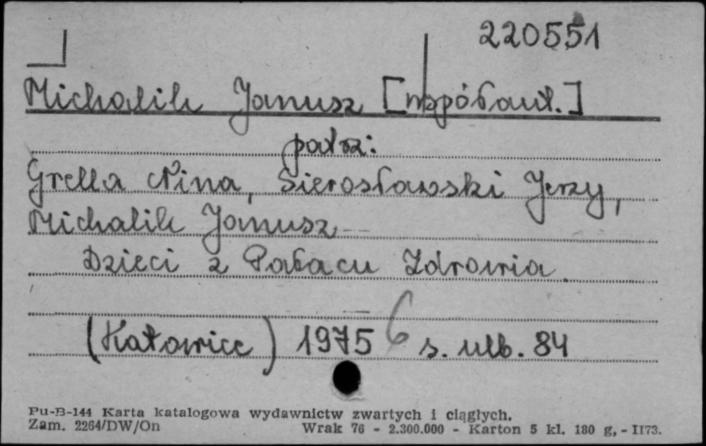 220551
Michalik Janusz [współaut.]
patrz:
Grella Nina, Sierosławski Jerzy,
Michalik Janusz
Dzieci z Pałacu Zdrowia.
(Katowice) 1975 6 s. nlb. 84
Pu-B-144 Karta katalogowa wydawnictw zwartych i ciągłych.
Zam. 2264/DW/On Wrak 76 - 2.300.000 - Karton 5 kl. 180 g, - II73.